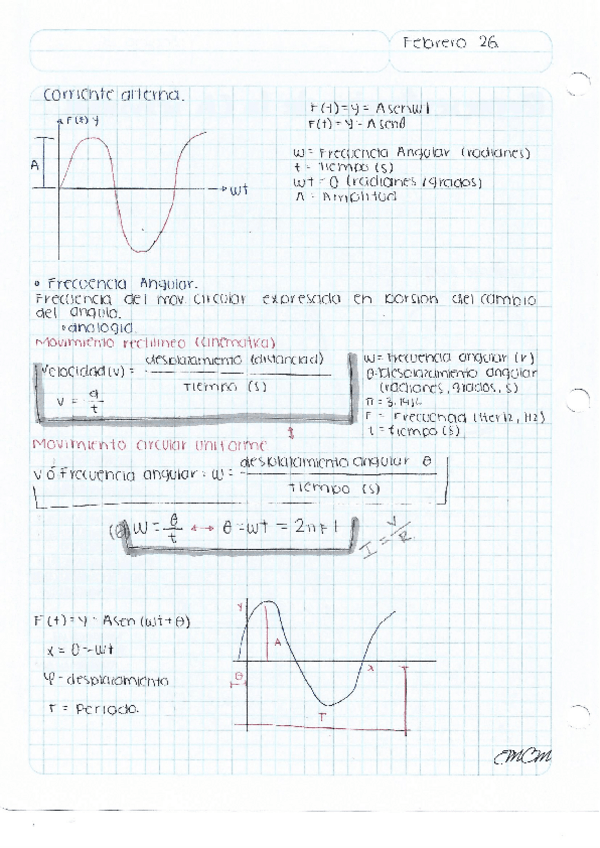 Febrero 26
Corriente alterna.
F(t) y
A
wt
F(t) = y = A sen wt
F(t) = y = A sen θ
w = Frecuencia Angular (radianes)
t = Tiempo (s)
wt = θ (radianes / grados)
A = Amplitud
• Frecuencia Angular.
Frecuencia del mov. circular expresada en porsion del cambio
del angulo.
• analogia.
Movimiento rectilineo (cinematica)
Velocidad (v) = desplazamiento (distancia d)
Tiempo (s)
v = d
t
w = Frecuencia angular (r)
θ = Desplazamiento angular
(radianes, grados, s)
π = 3.1416
F = Frecuencia (Hertz, Hz)
t = tiempo (s)
Movimiento circular uniforme
v ó Frecuencia angular: w = desplazamiento angular θ
Tiempo (s)
w = θ ↔ θ = wt = 2πFt
t
I = V
R
F(t) = y = A sen (wt + θ)
x = θ - wt
φ - desplazamiento
T = Periodo.
y
A
x
θ
T